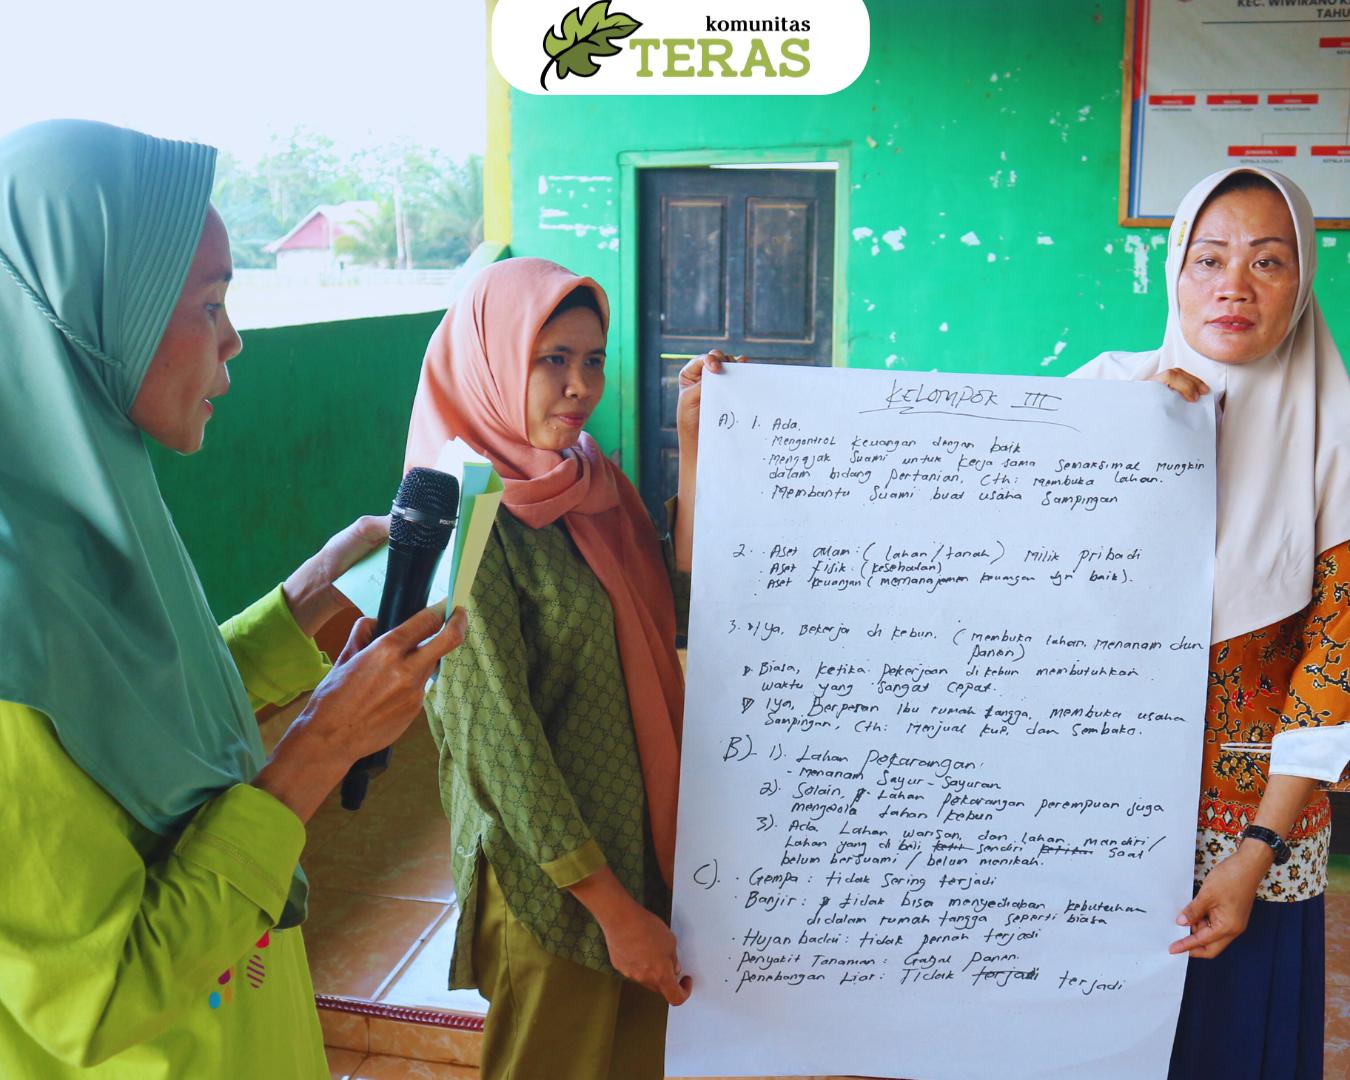 komunitas
TERAS
KEC. WIWIRANO
TAHU
KELOMPOK III
A). 1. Ada.
· Mengontrol keuangan dengan baik
· Mengajak Suami untuk kerja sama Semaksimal mungkin
dalam bidang pertanian, Cth: membuka lahan.
· Membantu Suami buat usaha Sampingan
2. · Aset alam: ( lahan / tanah ) milik pribadi
· Aset fisik: (kesehatan)
· Aset keuangan ( memanajemen keuangan dgn baik).
3. Iya, Bekerja di kebun. ( membuka lahan, menanam dan
Panen)
Biasa, ketika pekerjaan di kebun membutuhkan
waktu yang sangat cepat.
Iya, Berperan Ibu rumah tangga, membuka usaha
Sampingan, Cth: Menjual kue, dan Sembako.
B) - 1). Lahan Pekarangan:
- Menanam Sayur-Sayuran
2). Selain, Lahan Pekarangan perempuan juga
mengelola lahan kebun
3). Ada, Lahan warisan, dan lahan mandiri /
Lahan yang di beli sendiri ketika saat
belum bersuami / belum menikah.
C). · Gempa : tidak Sering terjadi
· Banjir : tidak bisa menyediakan kebutuhan
didalam rumah tangga seperti biasa
· Hujan badai : tidak pernah terjadi
· Penyakit Tanaman : Gagal Panen.
· Penebangan Liar : Tidak terjadi terjadi